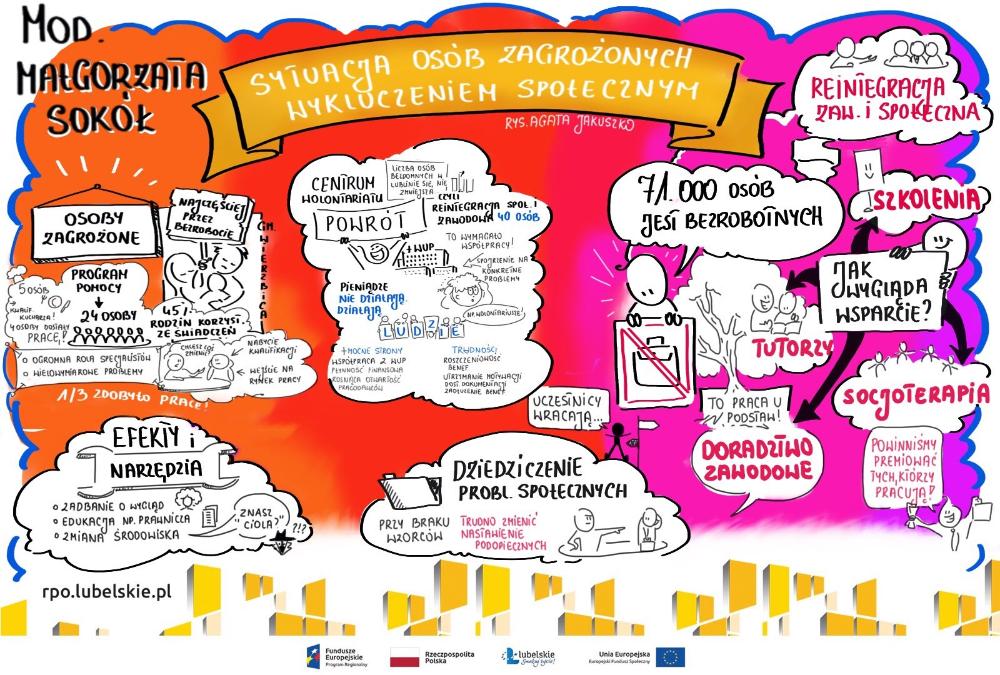 MOD.
MAŁGORZATA
SOKÓŁ
SYTUACJA OSÓB ZAGROŻONYCH
WYKLUCZENIEM SPOŁECZNYM
RYS. AGATA JAKUSZKO
OSOBY
ZAGROŻONE
NAJCZĘŚCIEJ
PRZEZ
BEZROBOCIE
GM. WIERZBICA
PROGRAM
POMOCY
24 OSOBY
5 OSÓB
KWALIF.
KUCHARZA!
4 OSOBY DOSTAŁY
PRACĘ!
45%
RODZIN KORZYST.
ZE ŚWIADCZEŃ
OGROMNA ROLA SPECJALISTÓW
WIELOWYMIAROWE PROBLEMY
CHCESZ COŚ
ZMIENIĆ?
NABYCIE
KWALIFIKACJI
WEJŚCIE NA
RYNEK PRACY
1/3 ZDOBYŁO PRACĘ!
CENTRUM
WOLONTARIATU
POWRÓT
LICZBA OSÓB
BEZDOMNYCH W
LUBLINIE SIĘ NIE
ZMNIEJSZA
CZYLI
REINTEGRACJA SPOŁ. I
ZAWODOWA 40 OSÓB
+ WUP
TO WYMAGAŁO
WSPÓŁPRACY!
SPOJRZENIE NA
KONKRETNE
PROBLEMY
PIENIĄDZE
NIE DZIAŁAJĄ.
DZIAŁAJĄ
LUDZIE
NP. WOLONTARIUSZE!
+ MOCNE STRONY
WSPÓŁPRACA Z WUP
PŁYNNOŚĆ FINANSOWA
ROSNĄCA OTWARTOŚĆ
PRACODAWCÓW
TRUDNOŚCI
ROSZCZENIOWOŚĆ
BENEF.
UTRZYMANIE MOTYWACJI
DOST. DOKUMENTACJI
ZADŁUŻENIE BENEF.
71.000 OSÓB
JEST BEZROBOTNYCH
REINTEGRACJA
ZAW. I SPOŁECZNA
SZKOLENIA
JAK
WYGLĄDA
WSPARCIE?
TUTORZY
SOCJOTERAPIA
TO PRACA U
PODSTAW!
DORADZTWO
ZAWODOWE
UCZESTNICY
WRACAJĄ...
POWINNIŚMY
PREMIOWAĆ
TYCH, KTÓRZY
PRACUJĄ!
EFEKTY i
NARZĘDZIA
ZADBANIE O WYGLĄD
EDUKACJA NP. PRAWNICZA
ZMIANA ŚRODOWISKA
"ZNASZ
CIOLA?"
?!?
DZIEDZICZENIE
PROBL. SPOŁECZNYCH
PRZY BRAKU
WZORCÓW
TRUDNO ZMIENIĆ
NASTAWIENIE
PODOPIECZNYCH
rpo.lubelskie.pl
Fundusze
Europejskie
Program Regionalny
Rzeczpospolita
Polska
lubelskie
Smakuj życie!
Unia Europejska
Europejski Fundusz Społeczny